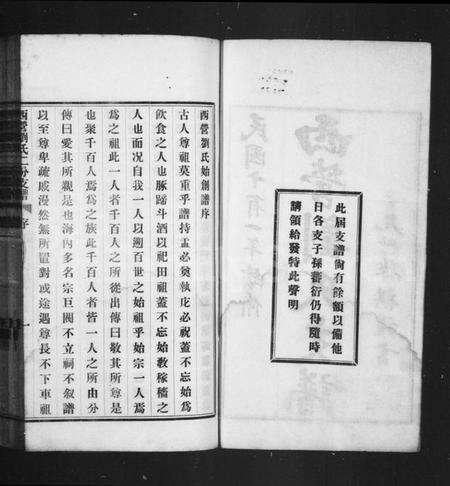 此屆支譜尙有餘額以備他
日各支子孫蕃衍仍得隨時
請領給發特此聲明
西營劉氏始創譜序
古人尊祖莫重乎譜持盂必奠執庀必祝蓋不忘始為
飲食之人也豚蹄斗酒以祀田祖蓋不忘始教稼穡之
人也而況自我一人以溯百世之始祖乎始宗一人焉
為之祖此一人者千百人之所從出傳曰敬其所尊是
也聚千百人焉為之族此千百人者皆一人之所由分
傳曰愛其所親是也海內多名宗巨閥不立祠不叙譜
以至尊卑疏戚漫然無所置對或途遇尊長不下車祖
西營劉氏二分支譜 序 一